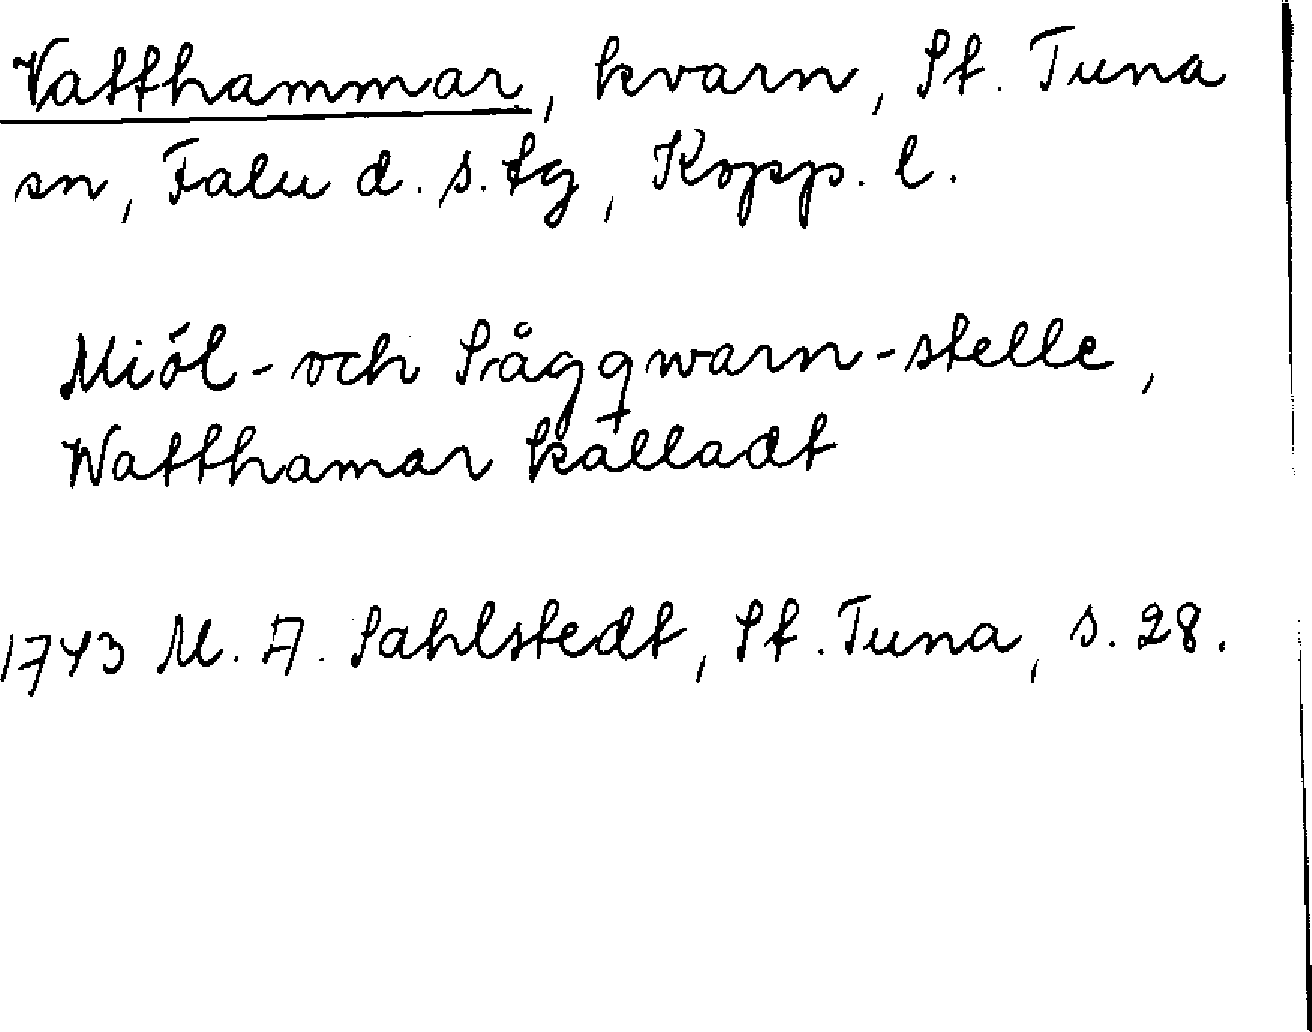 Vatthammar, kvarn, St. Tuna
sn, Falu d. s. tg, Kopp. l.
Miöl-och Sågqwarn-stelle,
Watthamar kålladt
1743 M. A. Sahlstedt, St. Tuna, s. 28.